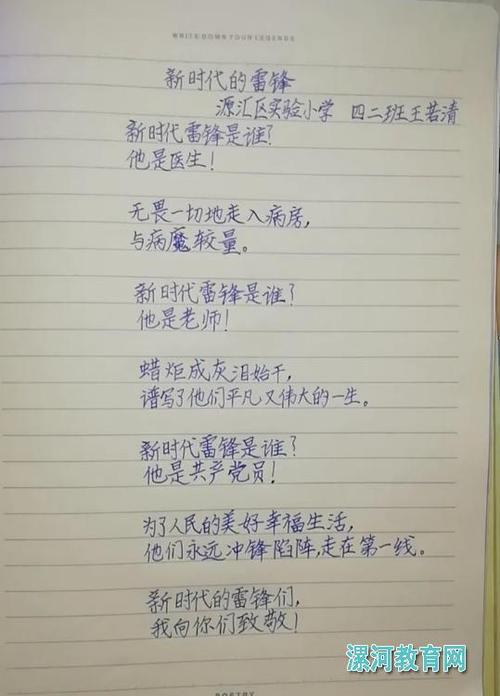 WRITE DOWN YOUR LEGENDS
新时代的雷锋
源汇区实验小学 四二班王若清
新时代雷锋是谁?
他是医生!
无畏一切地走入病房,
与病魔较量。
新时代雷锋是谁?
他是老师!
蜡炬成灰泪始干,
谱写了他们平凡又伟大的一生。
新时代雷锋是谁?
他是共产党员!
为了人民的美好幸福生活,
他们永远冲锋陷阵,走在第一线。
新时代的雷锋们,
我向你们致敬!
漯河教育网
POETRY